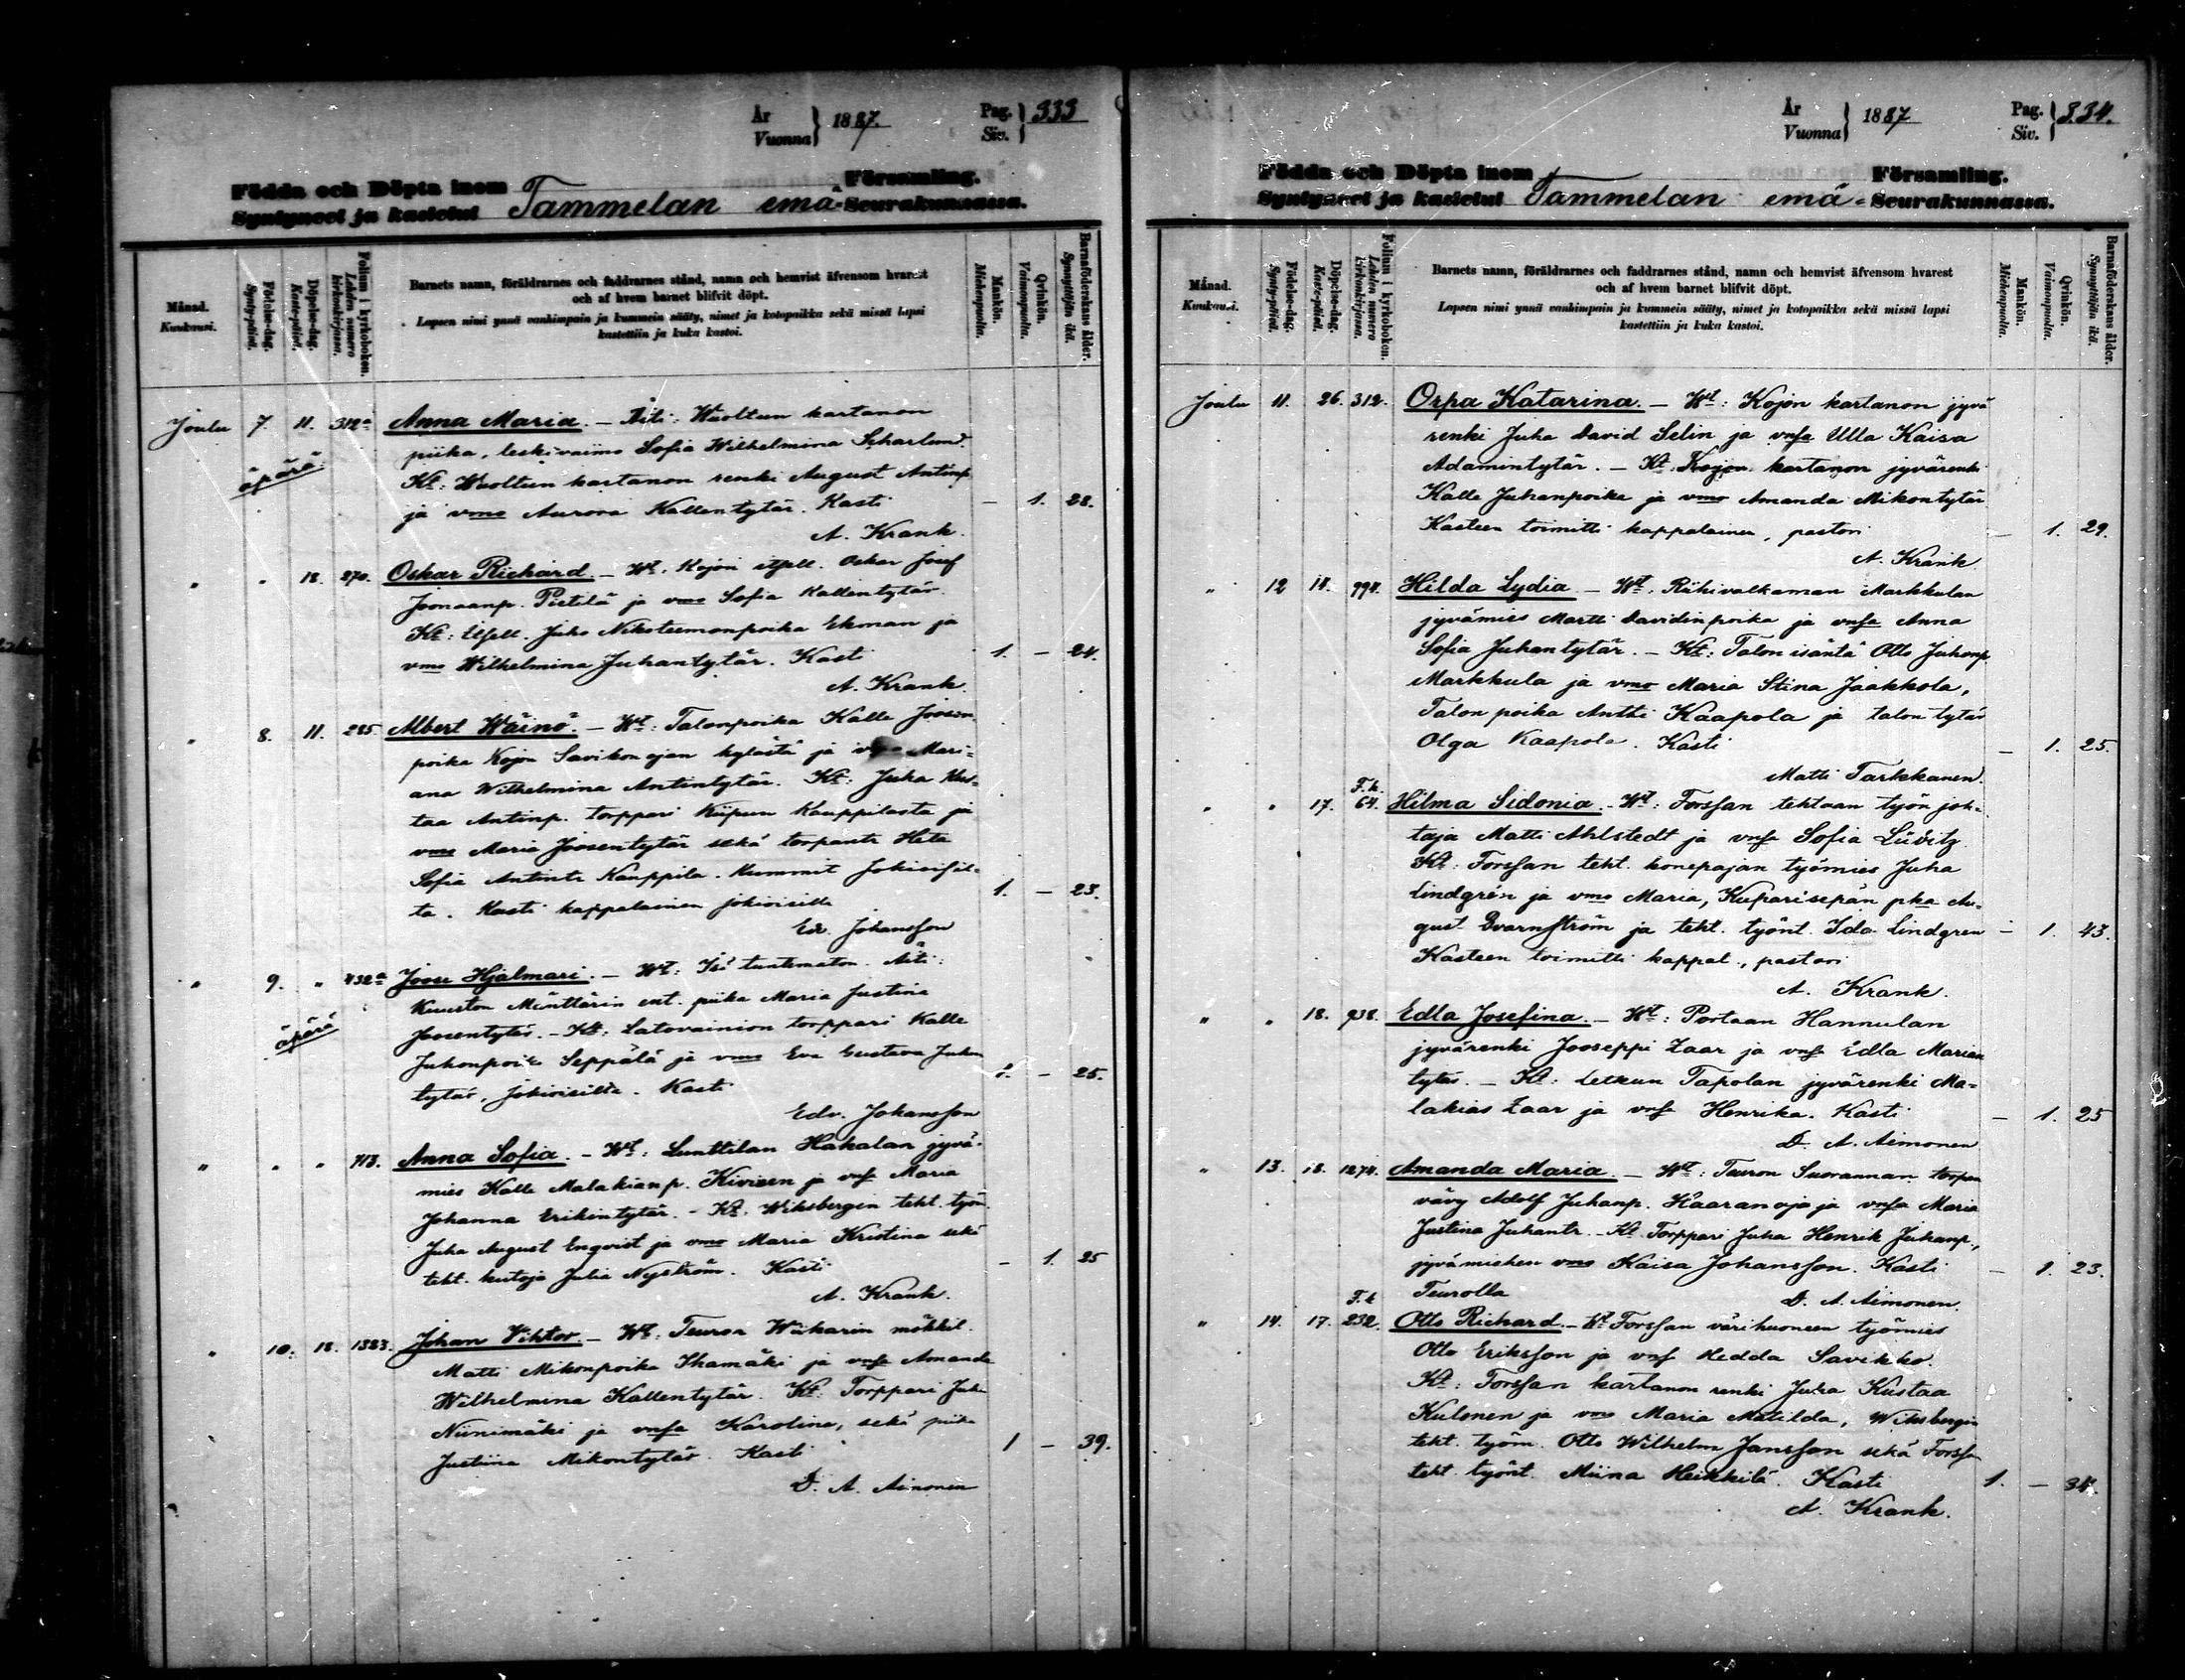 År
Vuonna } 1887.
Pag.
Siv. } 333
Födda och Döpta inom Församling.
Syntyneet ja kastetut Tammelan emä- Seurakunnassa.
Månad.
Kuukausi.
Födelse-dag.
Synty-päivä.
Döpelse-dag.
Kaste-päivä.
Folium i kyrkoboken.
Lehden numero kirkonkirjassa.
Barnets namn, föräldrarnes och faddrarnes stånd, namn och hemvist äfvensom hvarest
och af hvem barnet blifvit döpt.
Lapsen nimi ynnä vanhimpain ja kummein sääty, nimet ja kotopaikka sekä missä lapsi
kastettiin ja kuka kastoi.
Mankön.
Miehenpuolta.
Qvinkön.
Vaimonpuolta.
Barnaföderskans ålder.
Synnyttäjän ikä.
Joulu 7. 11. 312a Anna Maria. – Äiti: Waoltun kartanon
äpärä piika, leskivaimo Sofia Wilhelmina Scharlund.
Kt: Waoltun kartanon renki August Antinp.
ja vmo Aurora Kallentytär. Kasti – 1. 28.
A. Krank.
" " 18. 270. Oskar Richard. – Wt. Kojon itsell. Oskar Josef
Joonaanp. Pietilä ja vmo Sofia Kallentytär.
Kt: Itsell. Juho Nikoteemonpoika Ekman ja
vmo Wilhelmina Juhantytär. Kasti 1. – 24.
A. Krank.
" 8. 11. 285 Albert Wäinö. – Wt: Talonpoika Kalle Joosen
poika Kojon Savikonojan kylästä ja Mari-
ana Wilhelmina Antintytär. Kt: Juha Kus-
taa Antinp. torppari Kiipun Kauppilasta ja
vmo Maria Joosentytär sekä torpantr Heta
Sofia Antintr Kauppila. Kummit Jokioisil-
ta. Kasti kappalainen jokioisilla 1. – 23.
Edv. Johansson
" 9. " 432a Joose Hjalmari. – Wt: Isä tuntematon. Äiti:
Kuuston Mänttärin ent. piika Maria Justina
äpärä Joosentytär. – Kt: Latovainion torppari Kalle
Juhonpoika Seppälä ja vmo Eva Gustava Juhan
tytär, jokioisilta. Kasti 1. – 25.
Edv. Johansson
" " " 713. Anna Sofia. – Wt: Lunttilan Hakalan jyvä-
mies Kalle Malakianp. Kivisen ja vmsa Maria
Johanna Erikintytär. – Kt. Wiksbergin teht. työm.
Juha August Enqvist ja vmo Maria Kristina sekä
teht. kutoja Julia Nyström. Kasti – 1. 25
A. Krank.
" 10. 18. 1383. Johan Vihtor. – Wt: Teuron Wiikarin mökkil.
Matti Mikonpoika Ihamäki ja vmsa Amanda
Wilhelmina Kallentytär. Kt: Torppari Juha
Niinimäki ja vmsa Karolina, sekä piika
Justiina Mikontytär. Kasti 1 – 39.
D. A. Aimonen
År
Vuonna } 1887
Pag.
Siv. } 334.
Födda och Döpta inom Församling.
Syntyneet ja kastetut Tammelan emä- Seurakunnassa.
Månad.
Kuukausi.
Födelse-dag.
Synty-päivä.
Döpelse-dag.
Kaste-päivä.
Folium i kyrkoboken.
Lehden numero kirkonkirjassa.
Barnets namn, föräldrarnes och faddrarnes stånd, namn och hemvist äfvensom hvarest
och af hvem barnet blifvit döpt.
Lapsen nimi ynnä vanhimpain ja kummein sääty, nimet ja kotopaikka sekä missä lapsi
kastettiin ja kuka kastoi.
Mankön.
Miehenpuolta.
Qvinkön.
Vaimonpuolta.
Barnaföderskans ålder.
Synnyttäjän ikä.
Joulu 11. 26. 312. Orpa Katarina. – Wt: Kojon kartanon jyvä
renki Juha David Selin ja vmsa Ulla Kaisa
Adamintytär. – Kt. Kojon kartanon jyvärenki
Kalle Juhanpoika ja vmo Amanda Mikontytär
Kasteen toimitti kappalainen, pastori – 1. 29.
A. Krank
" 12 14. 994. Hilda Lydia – Wt. Riihivalkaman Markkulan
jyvämies Martti Davidinpoika ja vmsa Anna
Sofia Juhantytär. – Kt: Talon isäntä Otto Juhanp.
Markkula ja vmo Maria Stina Jaakkola,
Talon poika Antti Kaapola ja talon tytär
Olga Kaapola. Kasti – 1. 25.
Matti Tarkkanen.
" " 17. F.k. 64. Hilma Sidonia. – Wt: Forssan tehtaan työn joh-
taja Matti Ahlstedt ja vmsa Sofia Lüvitz.
Kt: Forssan teht. konepajan työmies Juha
Lindgrén ja vmo Maria, Kuparisepän pka Au-
gust Qvarnström ja teht. työnt. Ida Lindgren – 1. 43.
Kasteen toimitti kappal., pastori
A. Krank.
" " 18. 938. Edla Josefina. – Wt: Portaan Hannulan
jyvärenki Jooseppi Zaar ja vmsa Edla Marian
tytär. – Kt: Letkun Tapolan jyvärenki Ma-
lakias Zaar ja vmsa Henrika. Kasti – 1. 25
D. A. Aimonen
" 13. 18. 1274. Amanda Maria. – Wt: Teuron Suorannan torpan
vävy Adolf Juhanp. Haaranoja ja vmsa Maria
Justina Juhantr. – Kt. Torppari Juha Henrik Juhanp.,
jyvämiehen vmo Kaisa Johansson. Kasti – 1. 23.
Teurolla D. A. Aimonen.
" 14. 17. F.k 232. Otto Richard. – Wt. Forssan värihuoneen työmies
Otto Eriksson ja vmsa Hedda Savikko.
Kt: Forssan kartanon renki Juha Kustaa
Kulonen ja vmo Maria Matilda, Wiksbergin
teht. työm. Otto Wilhelm Jansson sekä Forssan
teht. työnt. Miina Heikkilä. Kasti 1. – 34.
A. Krank.